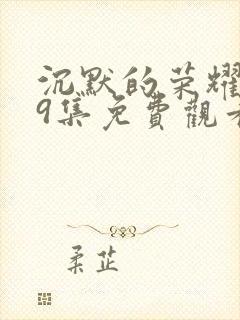 沉默的荣耀
9集免費觀看
柔芷